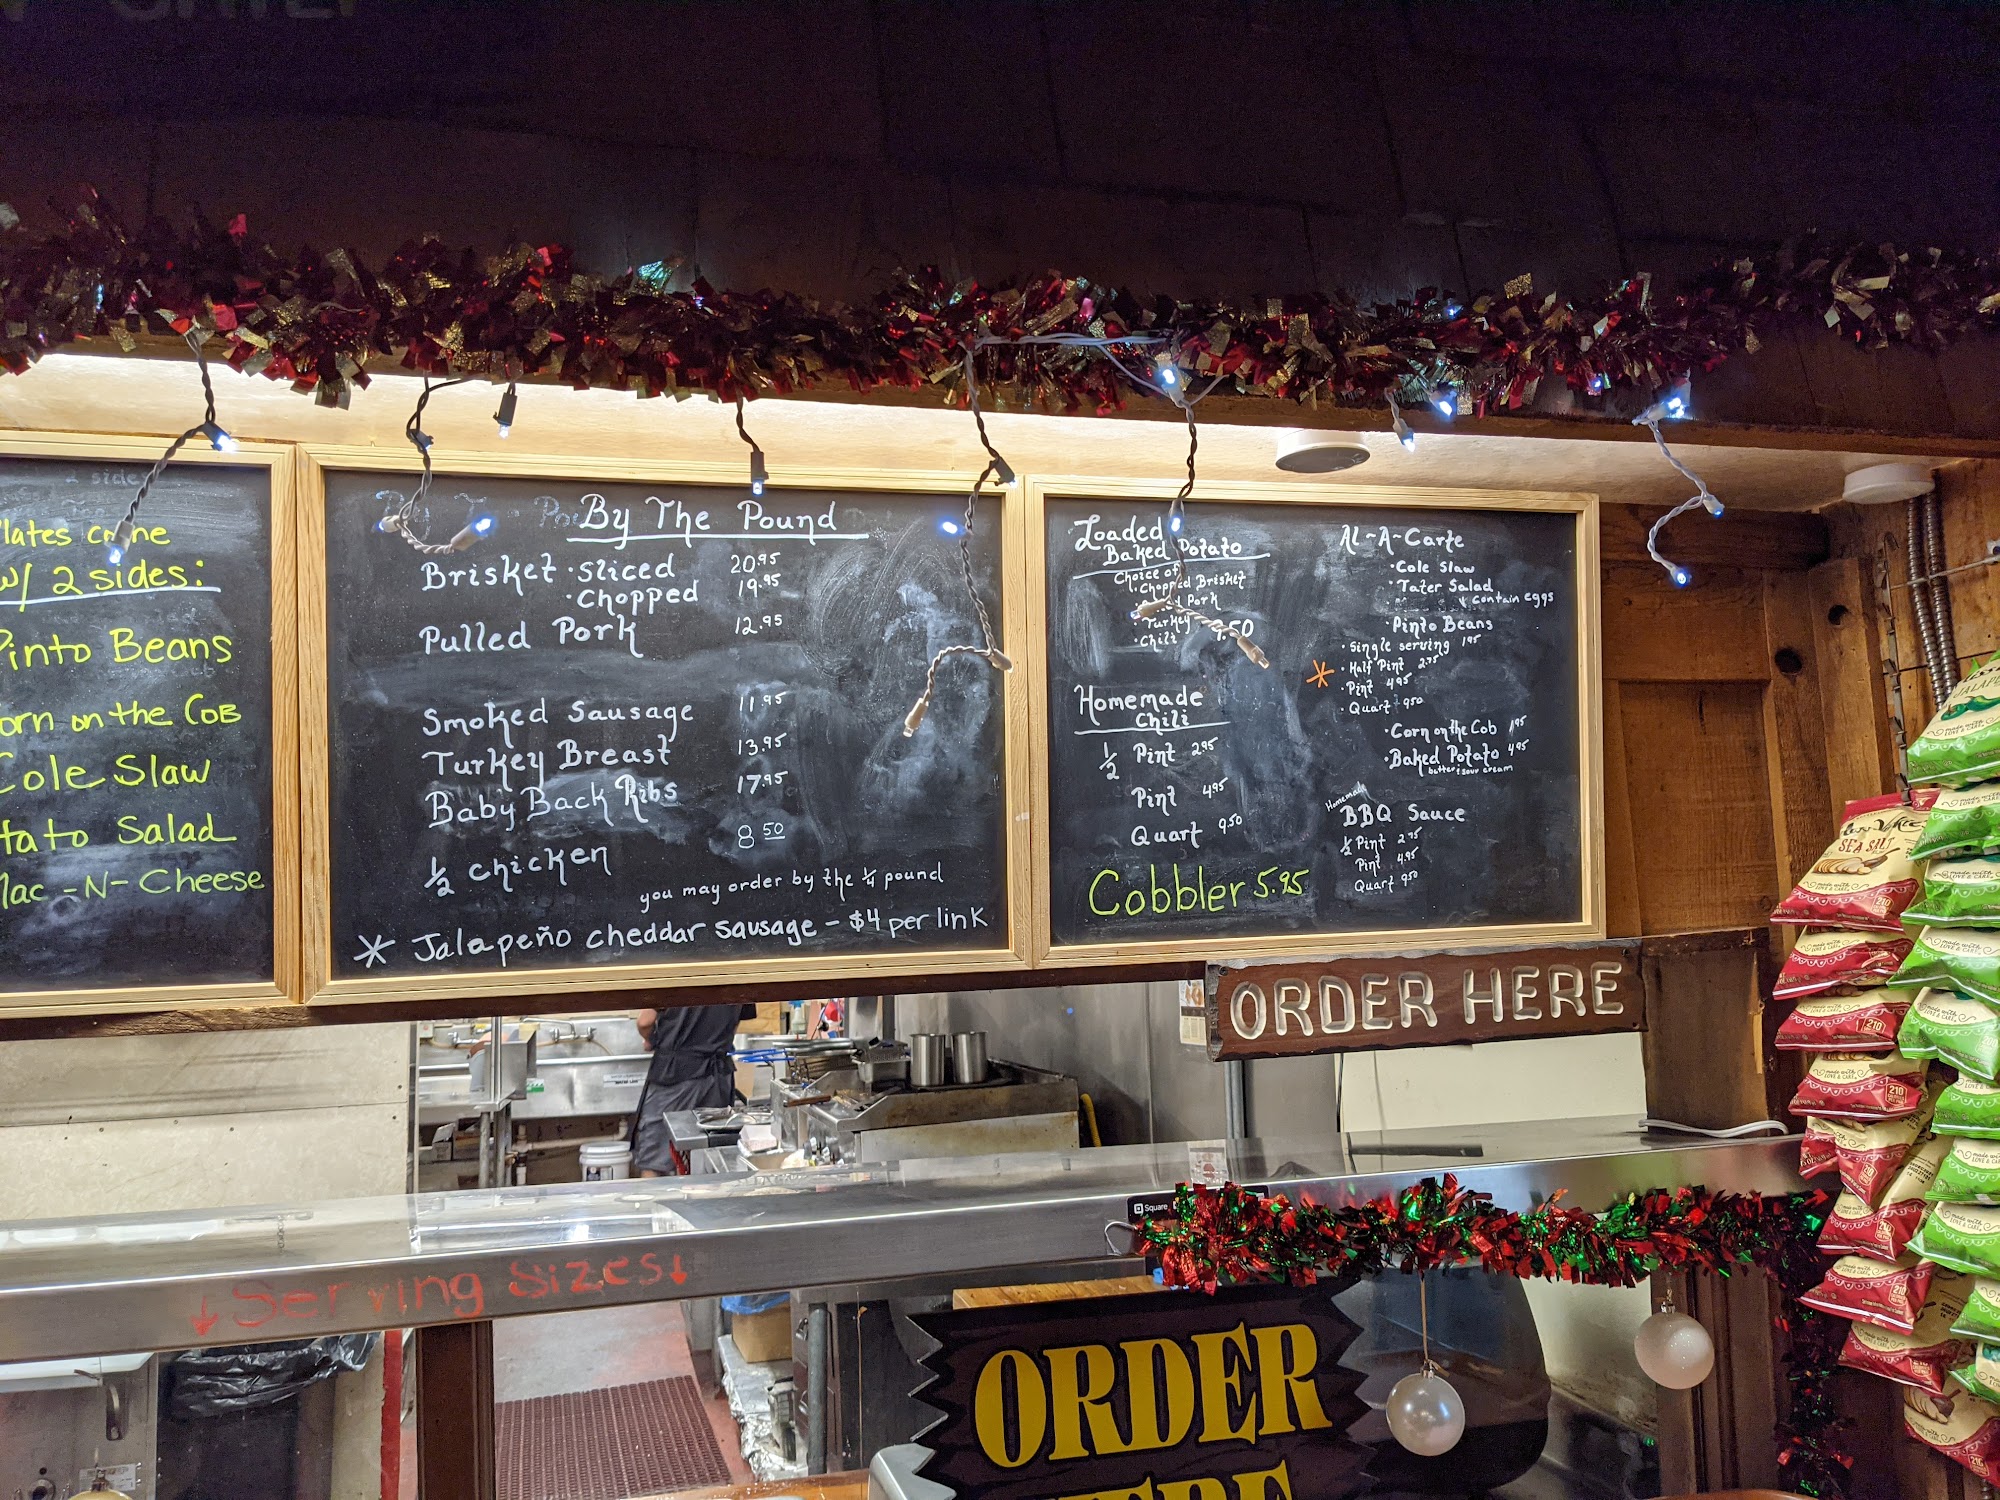 2 side
Plates come
w/ 2 sides:
Pinto Beans
Corn on the Cob
Cole Slaw
Potato Salad
Mac-N-Cheese
By The Pound
Brisket • sliced 20.95
• chopped 19.95
Pulled Pork 12.95
Smoked Sausage 11.95
Turkey Breast 13.95
Baby Back Ribs 17.95
1/2 chicken 8 50
you may order by the 1/4 pound
* Jalapeño cheddar sausage - $4 per link
Loaded
Baked Potato
Choice of
• Chopped Brisket
Pork
• Turkey
• Chili .50
Homemade
Chili
1/2 Pint 2.95
Pint 4.95
Quart 9.50
Cobbler 5.95
Al-A-Carte
• Cole Slaw
• Tater Salad
contain eggs
• Pinto Beans
• Single serving 1.95
* • Half Pint 2.75
• Pint 4.95
• Quart 9.50
• Corn on the Cob 1.95
• Baked Potato 4.95
butter & sour cream
Homemade
BBQ Sauce
1/2 Pint 2.75
Pint 4.95
Quart 9.50
ORDER HERE
↓ Serving Sizes ↓
Square
ORDER
HERE
JALAP
SEA SALT
made with
LOVE & CARE
210